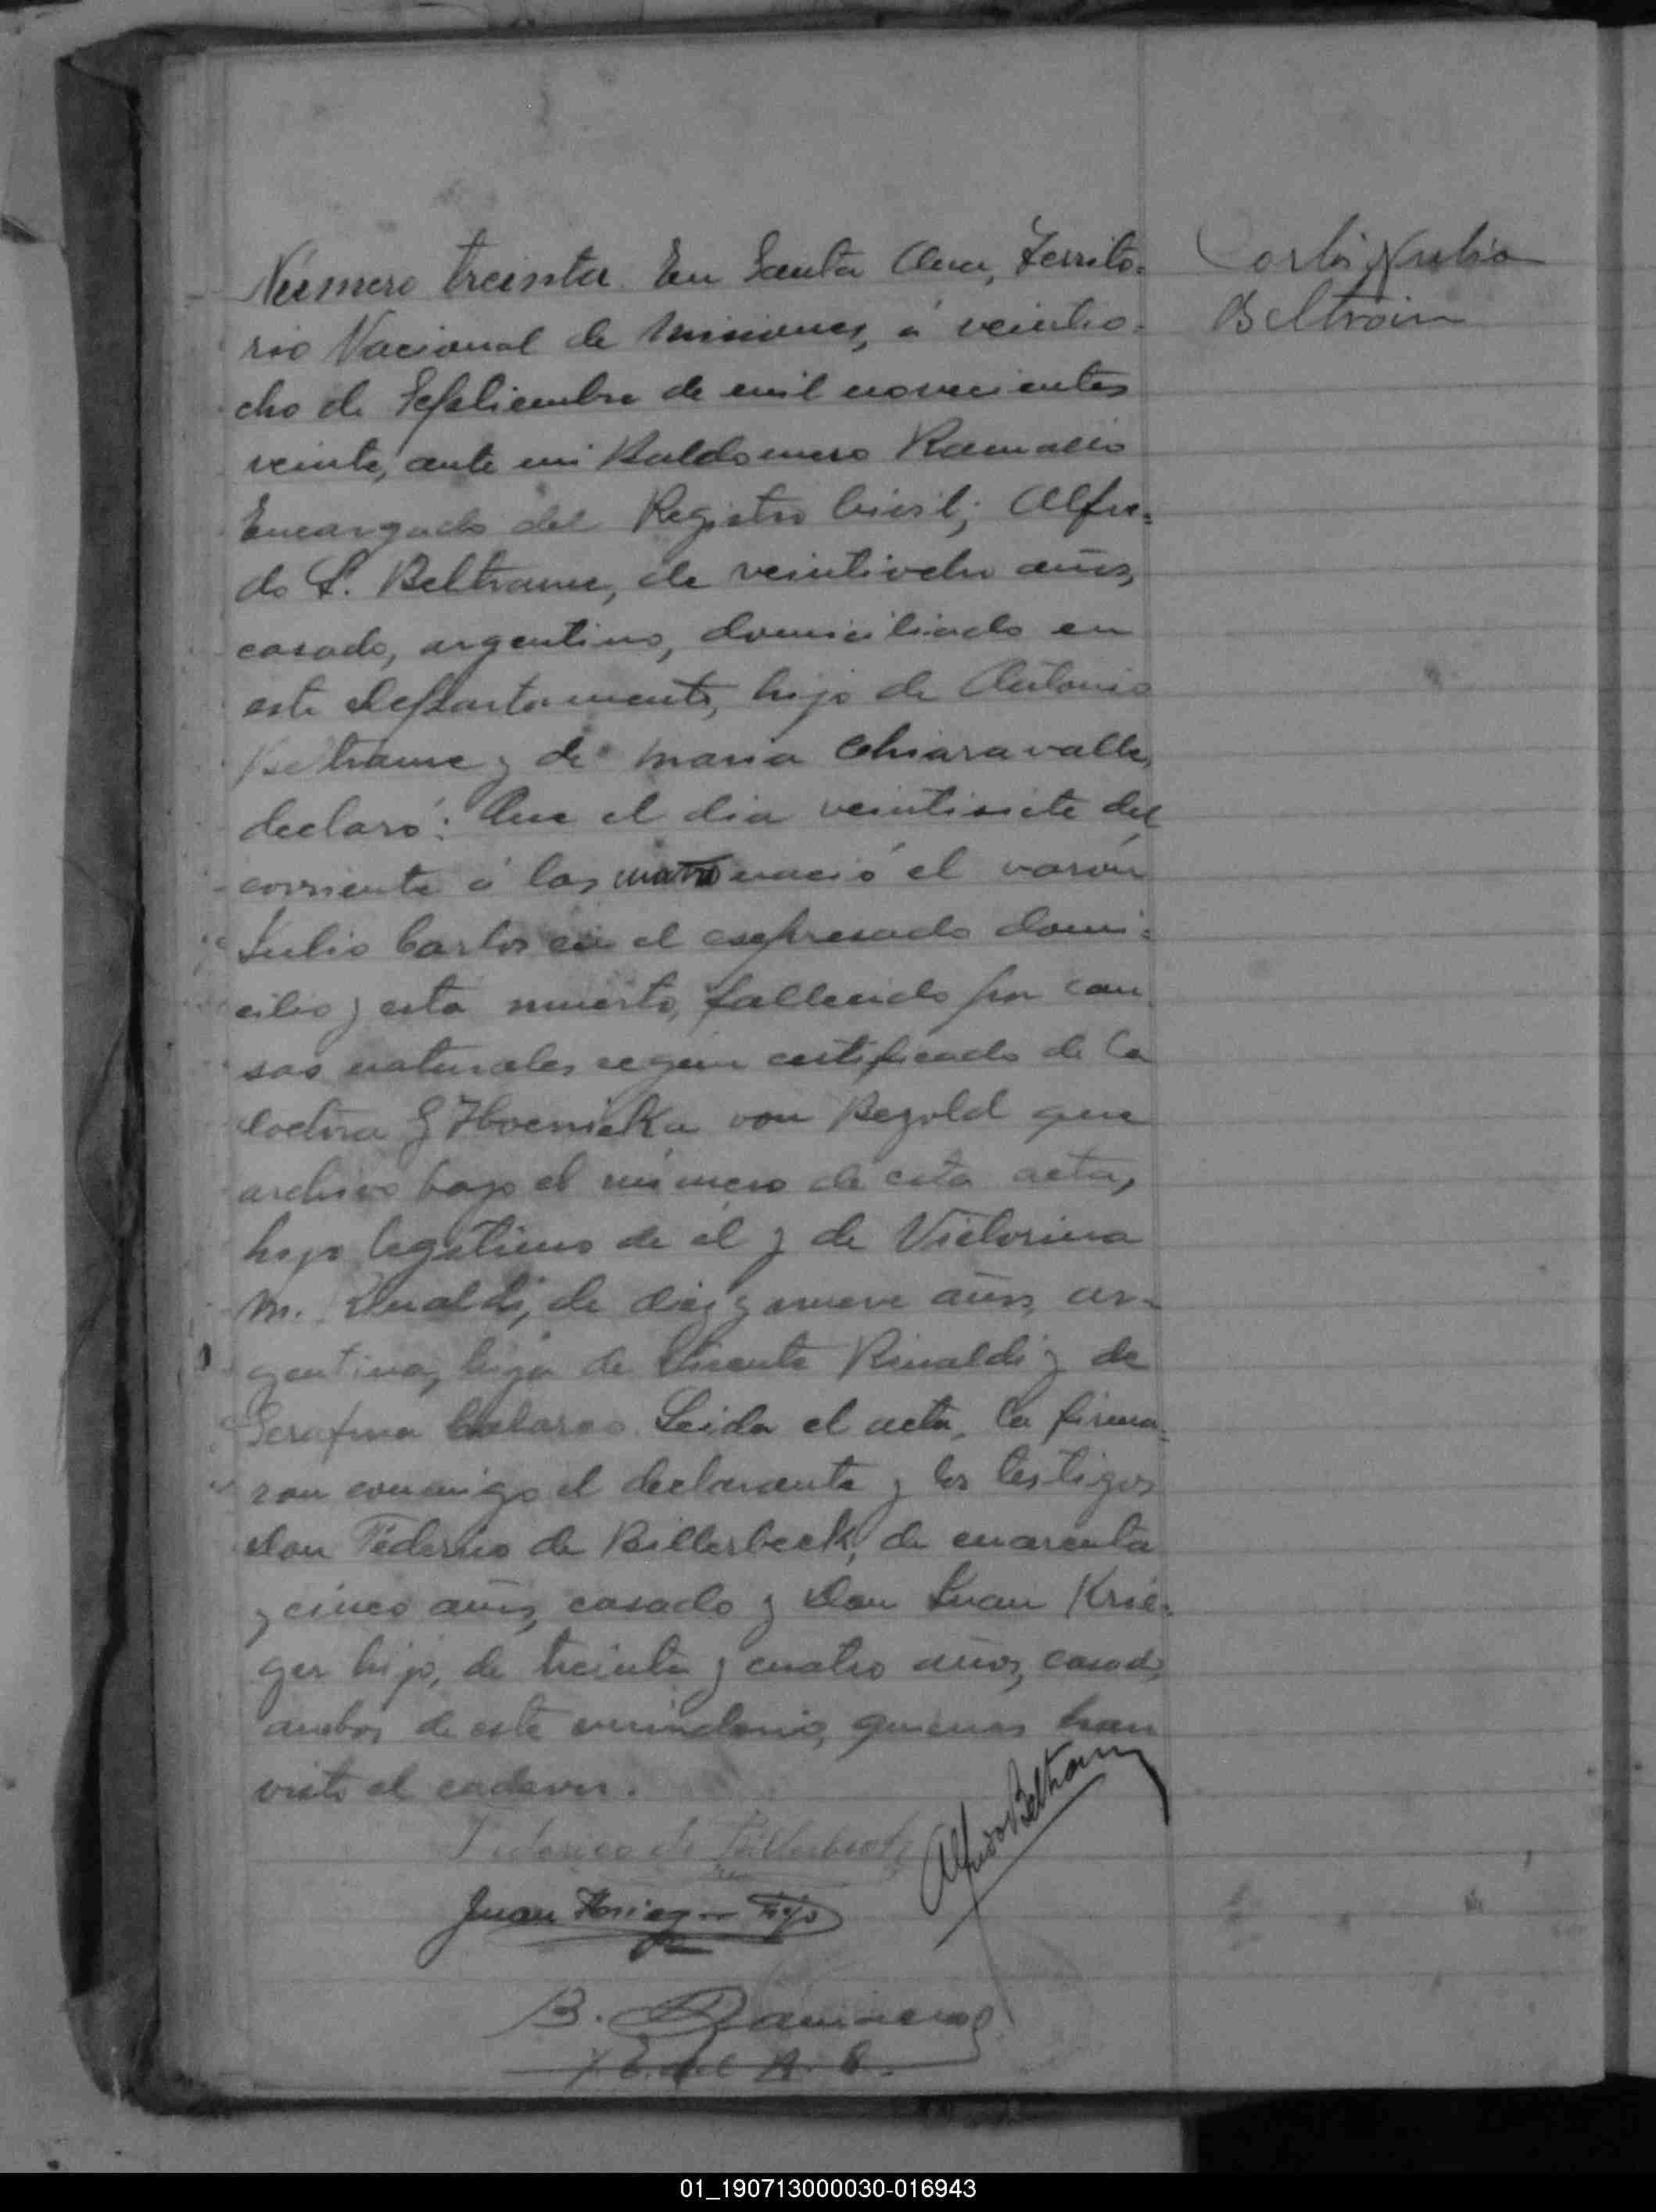 Número treinta. En Santa Ana, Territo=
rio Nacional de Misiones, á veintio=
cho de Septiembre de mil novecientos
veinte, ante mi Baldomero
Encargado del Registro Civil; Alfre=
do S. Beltrame, de veintiocho años,
casado, argentino, domiciliado en
este Departamento, hijo de Antonio
Beltrame y de Maria Chiaravalle,
declaró: Que el dia veintisiete del
corriente á las cuatro nació el varón
Julio Carlos en el expresado domi=
cilio y esta muerto, fallecido por cau
sas naturales segun certificado de la
doctora von Bezold que
archivo bajo el número de esta acta,
hijo legitimo de él y de Victorina
M. Rinaldi, de diez y nueve años, ar=
gentina, hija de Vicente Rinaldi y de
Serafina Leida el acta, la firma=
ron conmigo el declarante y los testigos
don Federico de Billerbeck, de cuarenta
y cinco años, casado y don Juan Krie=
ger hijo, de treinta y cuatro años, casado,
ambos de este vecindario, quienes han
visto el cadaver.
Carlos Julio
Beltrain
Federico de Billerbeck
Alfredo Beltrame
Juan Krieger Hijo
B.
01_190713000030-016943